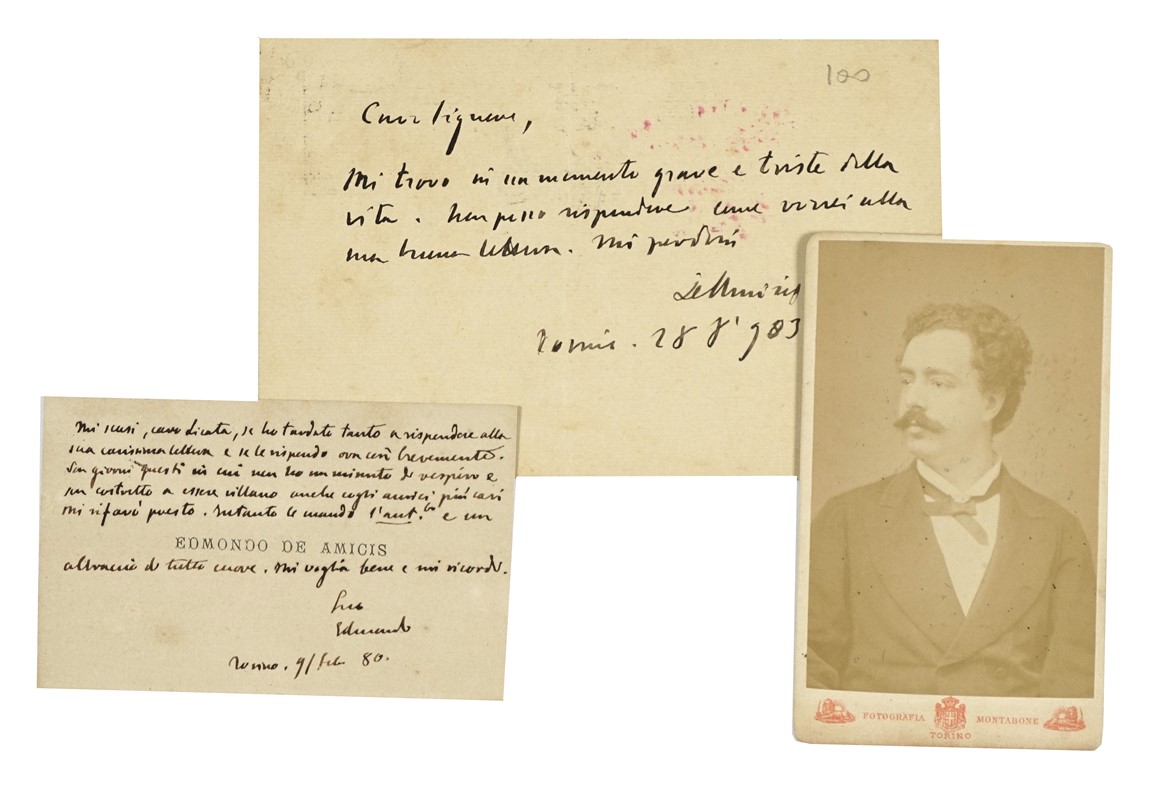 100
Caro Signore,
Mi trovo in un momento grave e triste della
vita. Non posso rispondere come vorrei alla
sua buona lettera. Mi perdoni
De Amicis
Torino. 28 8
Mi scusi, caro Licata, se ho tardato tanto a rispondere alla
sua carissima lettera e se le rispondo ora così brevemente.
Son giorni questi in cui non ho un minuto di respiro e
son costretto a essere villano anche cogli amici più cari
Mi rifarò presto. Intanto le mando l'aut.fo e un
EDMONDO DE AMICIS
abbraccio di tutto cuore. Mi voglia bene e mi ricordi.
Suo
Edmondo
Torino. 9/Feb. 80.
FOTOGRAFIA MONTABONE
TORINO